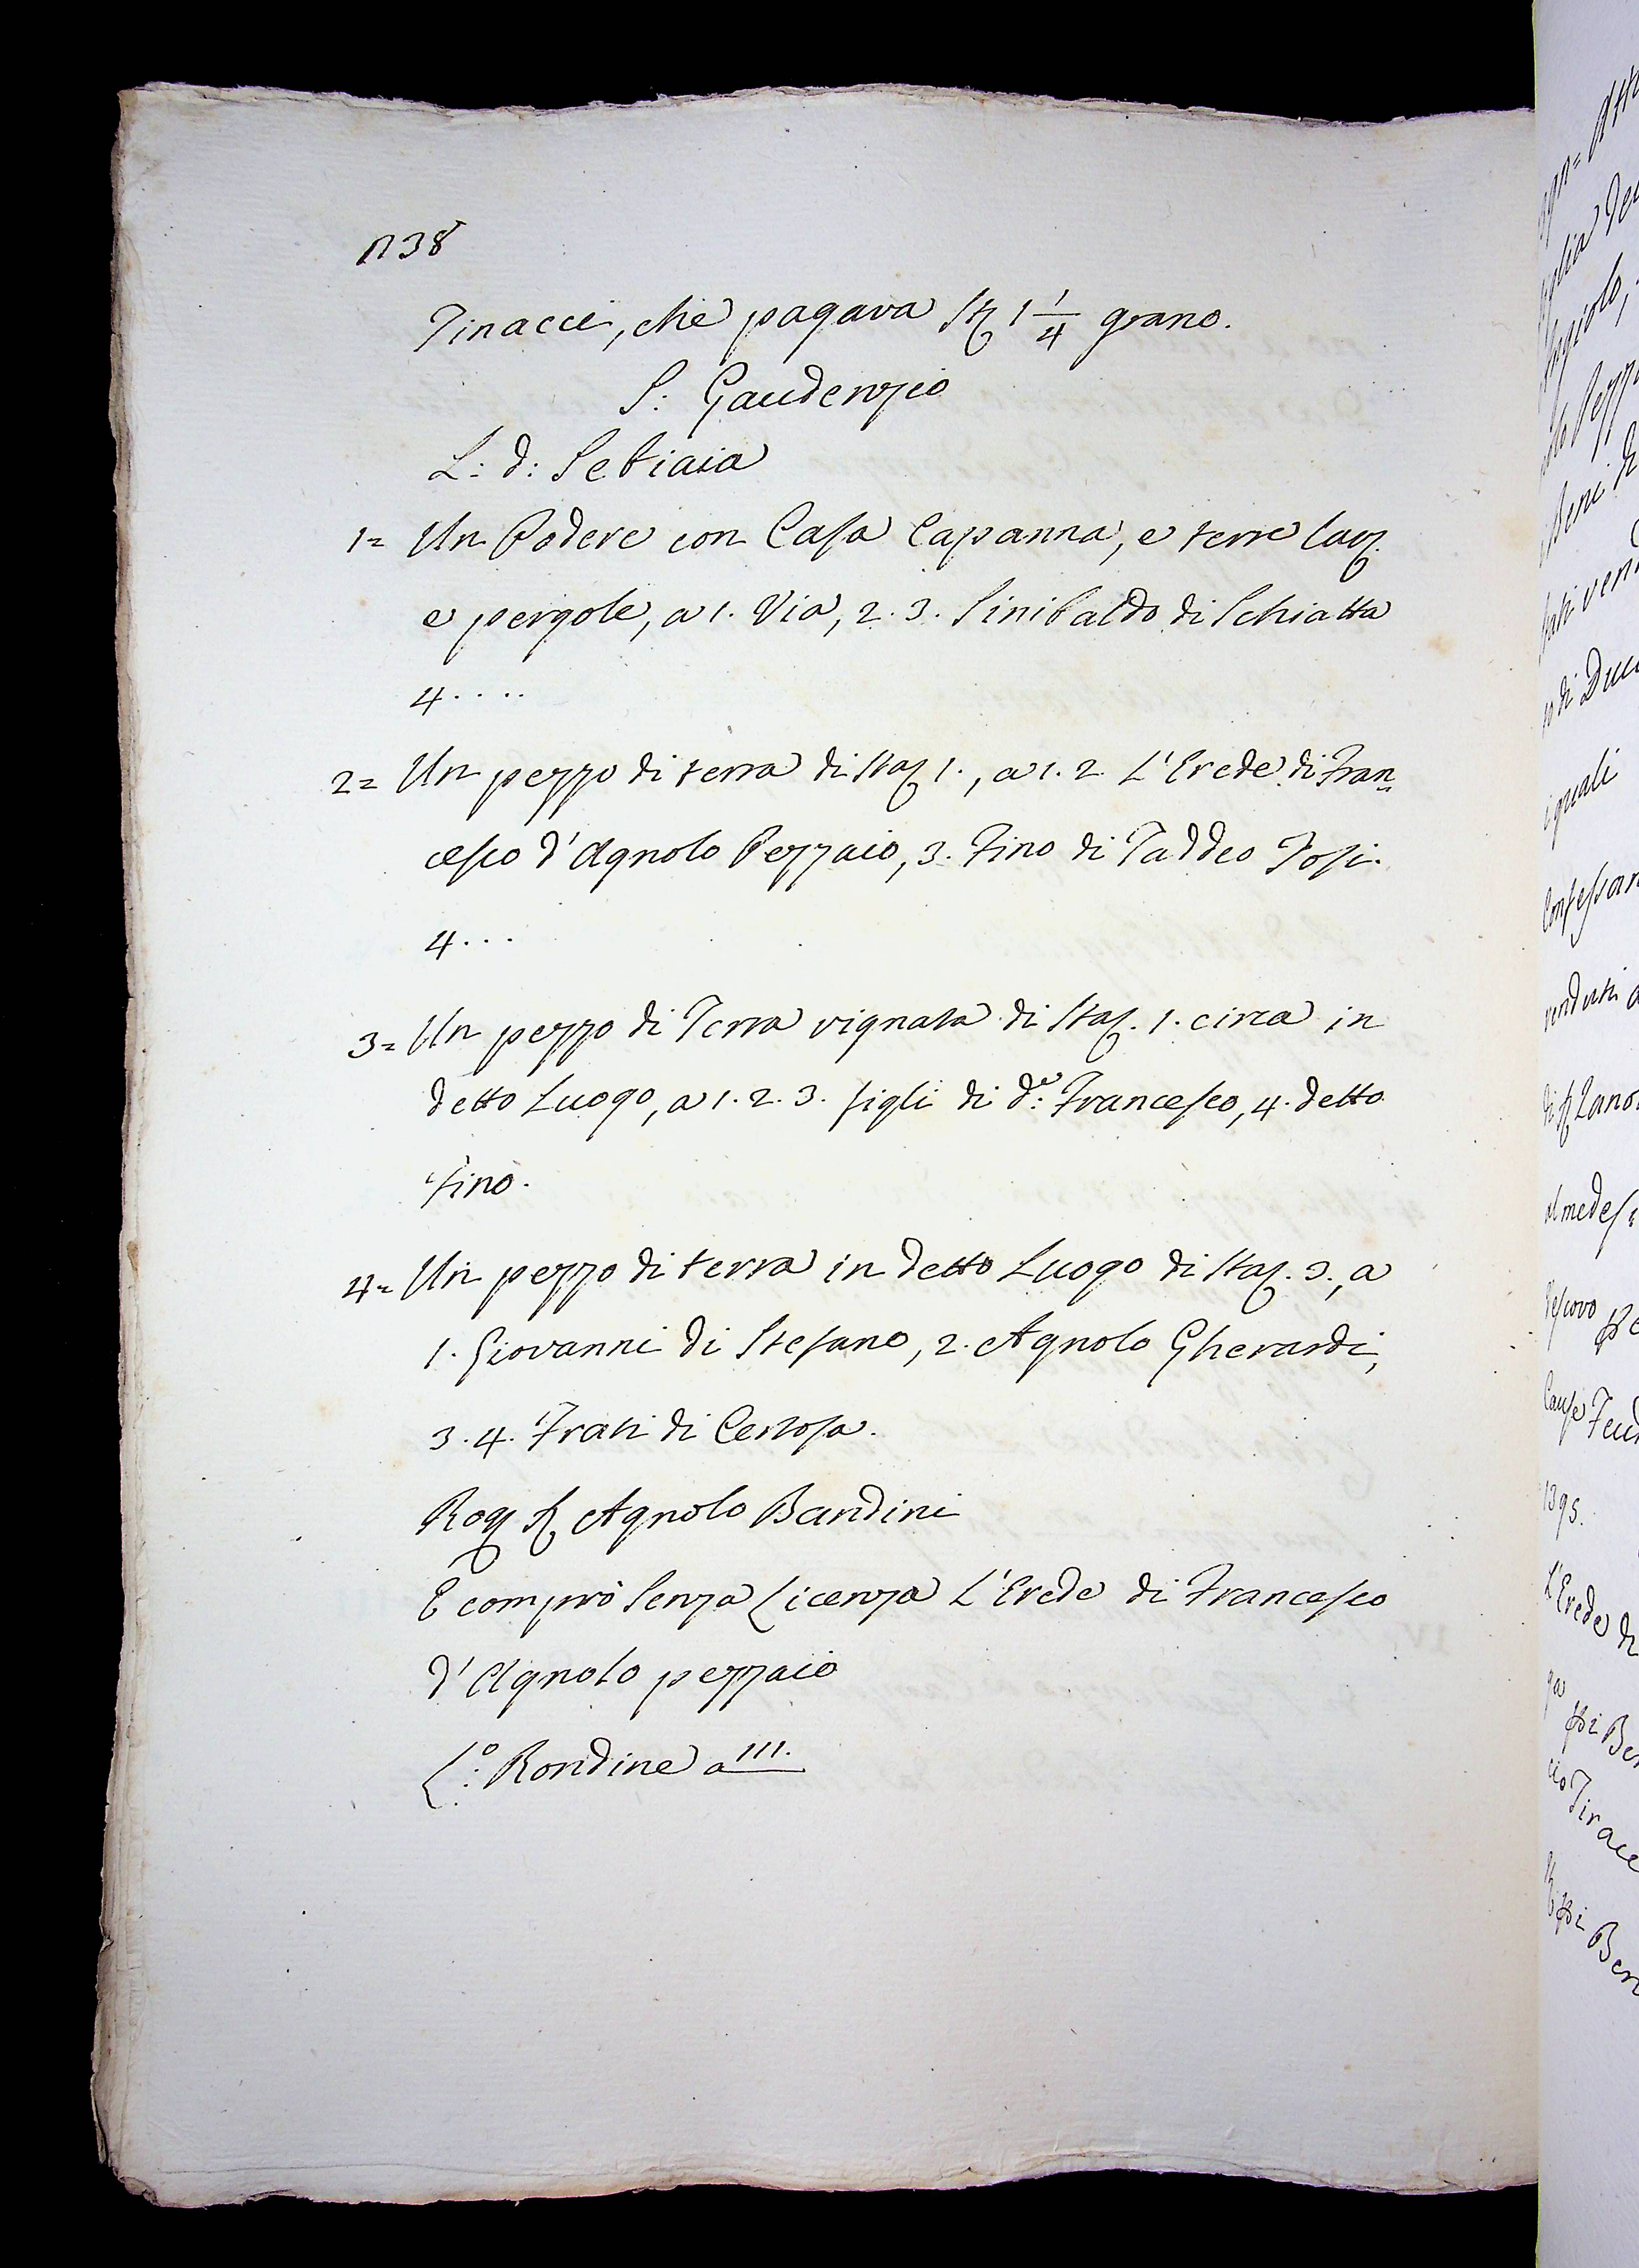 1138
Tinacci, che pagava St 1 1/4 grano.
S: Gaudenzio
L: d: Setiaia
1= Un Podere con Casa Capanna, e terre lav.
e pergole, a 1. Via, 2. 3. Sinibaldo di Schiatta
4....
2= Un pezzo di terra di Staj 1., a 1. 2 L'Erede di Fran=
cesco d'Agnolo Pezzaio, 3. Fino di Taddeo Tosi.
4...
3= Un pezzo di Terra vignata di Staj. 1. circa in
detto Luogo, a 1. 2. 3. figli di d.e Francesco, 4. detto
Fino.
4= Un pezzo di terra in detto Luogo di Staj. 3., a
1. Giovanni di Stefano, 2. Agnolo Gherardi,
3. 4. Frati di Certosa.
Rog. S. Agnolo Bandini
E comprò senza Licenza L'Erede di Francesco
d'Agnolo pezzaio
L.o Rondine a 111.
iquali
1395.
L'Erede di